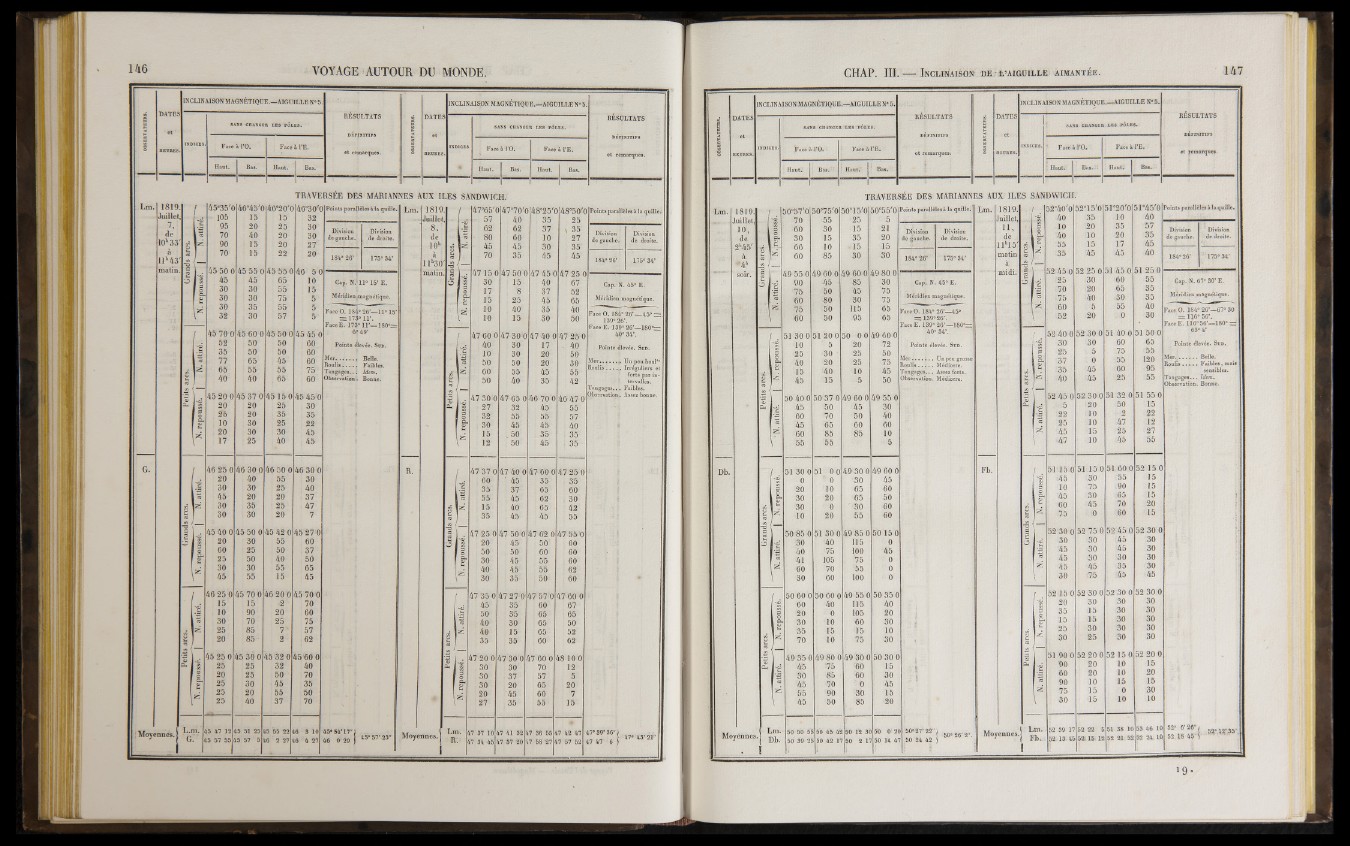 146 VOYAGE AUTOUR DU MONDE.
INCLINAISON MAGNÉTIQUE.—AIGUILLE N° 5.
OBSERVATEURS.
DATES
et
HEURES.
INDICES.
SANS CHANGER LES PÔLES.
Face à l'O.
Face à l'E.
Haut. Bas. Haut. Bas.
RÉSULTATS
DÉFINITIFS
et remarques.
TRAVERSÉE DES MARIANNES AUX ILES SANDWICH.
Lm.
1819.
Juillet,
7,
de
10h 33'
à
11h 43'
matin.
Grands arcs.
N. attiré.
45°35'0 46°45'0 46°20'0 46°30'0
105 15 15 32
95 20 25 30
70 40 20 30
90 15 20 27
70 15 22 20
N. repoussé.
45 50 0 45 55 0 45 55 0 46 5 0
45 45 65 10
30 30 55 15
30 30 75 5
30 35 55 5
32 30 57 5
Petits arcs.
N. attiré.
45 70 0 45 60 0 45 50 0 45 45 0
52 50 50 60
35 50 50 60
77 65 45 60
65 55 55 75
40 40 65 60
N. repoussé.
45 20 0 45 37 0 45 15 0 45 45 0
20 20 25 30
25 20 35 35
10 30 25 22
20 30 30 45
17 25 40 45
Points parallèles à la quille.
Division de gauche. Division de droite.
184° 26' 175° 34'
Cap. N. 11° 15' E.
Méridien magnétique.
Face O. 184° 26'—11° 15'
= 173° 11'.
Face E. 173° 11'—180°=
6° 49'
Pointe élevée. Sud.
Mer....... Belle.
Roulis..... Faibles.
Tangages... Idem.
Observation. Bonne.
G.
Grands arcs.
N. attiré.
46 25 0 46 30 0 46 30 0 46 30 0
20 40 55 30
30 30 25 40
45 20 20 37
30 35 25 47
30 30 20 7
N. repoussé.
45 40 0 45 50 0 45 42 0 45 27 0
20 30 55 60
60 25 50 37
25 50 40 50
30 30 55 65
45 55 15 45
Petits arcs.
N. attiré.
46 25 0 45 70 0 46 20 0 45 70 0
15 15 2 70
10 90 20 60
30 70 25 75
25 85 7 57
20 85 2 62
N. repoussé.
45 25 0 45 30 0 45 32 0 45 60 0
25 25 32 40
20 25 50 70
25 30 45 35
25 20 55 50
25 40 37 70
Moyennes.
Lm.
G.
Lm.
1819.
Juillet,
8,
de
10h
à
11h30'
matin.
Grands arcs.
N. attiré.
47°65'0 47°70'0 48°25'0 48°30'0
57 40 35 25
62 62 37 35
80 60 10 27
45 45 30 35
70 35 45 45
N. repoussé.
47 15 0 47 50 0 47 45 0 47 25 0
30 15 40 67
17 8 37 52
15 25 45 65
10 40 35 40
10 15 30 50
Petits arcs.
N. attiré.
47 60 0 47 30 0 47 40 0 47 25 0
40 30 17 40
10 30 20 50
50 50 20 30
60 35 45 55
50 40 35 42
N. repoussé.
47 30 0 47 65 0 46 70 0 46 47 0
27 32 45 55
32 55 55 57
30 45 45 40
15 50 35 35
12 50 45 35
Points parallèles à la quille.
Division de gauche. Division de droite.
184° 26' 175° 34'
Cap. N. 45° E.
Méridien magnétique.
Face O. 184° 26'—45°=
139° 26'.
Face E. 139° 26'—180°=
40° 34'.
Pointe élevée. Sud.
Mer....... Un peu houlse
Roulis..... Irréguliers et forts par intervalles.
Tangages... Faibles.
Observation. Assez bonne.
R.
Grands arcs.
N. attiré.
47 37 0 47 40 0 47 60 0 47 25 0
60 45 35 35
35 37 65 60
55 45 62 30
15 40 65 42
35 45 45 55
N. repoussé.
47 25 0 47 50 0 47 62 0 47 55 0
20 45 50 60
50 50 60 60
30 45 55 60
40 45 55 62
30 35 50 60
Petits arcs.
N. attiré.
47 35 0 47 27 0 47 57 0 47 60 0
45 35 60 67
50 35 65 65
40 30 65 50
40 15 65 52
35 35 60 62
N. repoussé.
47 20 0 47 30 0 47 60 0 48 10 0
30 30 70 12
30 37 57 5
30 20 45 20
20 45 60 7
27 35 55 15
Moyennes.
Lm.
R.
CHAP. III.— INCLINAISON DE L'AIGUILLE AIMANTÉE. 147
INCLINAISON MAGNÉTIQUE.—AIGUILLE N° 5.
OBSERVATEURS.
DATES
et
HEURES.
INDICES.
SANS CHANGER LES PÔLES.
Face à l'O.
Face à l'E.
Haut. Bas. Haut. Bas.
RÉSULTATS
DÉFINITIFS
et remarques.
TRAVERSÉE DES MARIANNES AUX ILES SANDWICH.
Lm.
1819.
Juillet,
10,
de
2h45'
à
4h
soir.
Grands arcs.
N. repoussé.
50°57'0 50°75'0 50°15'0 50°55'0
70 55 25 5
60 30 15 21
30 15 35 20
66 10 15 15
60 85 30 30
N. attiré.
49 55 0 49 60 0 49 60 0 49 80 0
90 45 85 30
75 50 45 75
60 80 30 75
75 50 115 65
60 50 95 65
Petits arcs.
N. repoussé.
51 30 0 51 20 0 50 0 0 49 40 0
10 5 20 72
25 30 25 50
40 20 25 75
15 40 10 45
45 15 5 50
N. attiré.
50 40 0 50 37 0 49 60 0 49 55 0
45 50 45 30
60 70 50 40
45 65 60 60
60 85 85 10
55 55 5
Points parallèles à la quille.
Division de gauche. Division de droite.
184° 26' 175° 34'
Cap. N. 45° E.
Méridien magnétique.
Face O. 184° 26'—45°
= 139° 26'.
Face E. 139° 26'—180°=
40° 34'.
Pointe élevée. Sud.
Mer....... Un peu grosse
Roulis..... Médiocre.
Tangages... Assez forts.
Observation. Médiocre.
Db.
Grands arcs.
N. repoussé.
51 30 0 51 0 0 49 30 0 49 60 0
0 0 30 45
20 10 65 60
30 20 65 50
30 0 30 60
10 20 55 60
N. attiré.
50 85 0 51 30 0 49 85 0 50 15 0
30 40 115 0
50 75 100 45
41 105 75 0
60 70 55 0
30 60 100 0
Petits arcs.
N. repoussé.
50 60 0 50 60 0 49 55 0 50 35 0
60 40 115 40
20 0 105 20
30 10 60 30
35 15 15 10
70 10 75 30
N. attiré.
49 35 0 49 80 0 49 30 0 50 30 0
45 75 60 15
30 85 60 30
45 70 0 45
55 90 30 15
45 50 85 20
Moyennes.
Lm.
Db.
Lm.
1819.
Juillet,
11,
de
11h15'
matin
à
midi.
Grands arcs.
N. attiré.
52°40'0 52°15'0 51°20'0 51°45'0
40 35 10 40
10 20 35 57
40 10 20 35
55 15 17 45
35 45 45 40
N. repoussé.
52 45 0 52 25 0 51 45 0 51 25 0
25 30 60 55
70 20 65 35
75 40 30 35
60 5 55 40
52 20 0 30
Petits arcs.
N. repoussé.
52 40 0 52 30 0 51 40 0 51 50 0
30 30 60 65
25 5 75 55
37 0 55 120
35 45 60 95
40 45 25 55
N. attiré.
52 45 0 52 30 0 51 32 0 51 55 0
5 20 50 15
22 10 2 22
25 10 47 12
45 15 25 27
47 10 45 55
Points parallèles à la quille.
Division de gauche. Division de droite.
184° 26' 175° 34'
Cap. N. 67° 30' E.
Méridien magnétique.
Face O. 184° 26'—67° 30
= 116° 56'.
Face E. 116° 56'—180°=
63° 4'
Pointe élevée. Sud.
Mer....... Belle.
Roulis..... Faibles, mais sensibles.
Tangages... Idem.
Observation. Bonne.
Fb.
Grands arcs.
N. repoussé.
51 15 0 51 15 0 51 60 0 52 15 0
45 30 55 15
10 75 90 15
45 30 65 15
60 45 70 20
75 0 60 15
N. attiré.
52 30 0 52 75 0 52 45 0 52 30 0
30 30 45 30
45 30 45 30
45 30 30 30
45 45 35 30
30 75 45 45
Petits arcs.
N. repoussé.
52 15 0 52 30 0 52 30 0 52 30 0
20 30 30 30
35 15 30 30
15 15 30 30
25 30 30 30
30 25 30 30
N. attiré.
51 90 0 52 20 0 52 15 0 52 20 0
90 20 10 15
60 20 10 20
90 10 15 15
75 15 0 30
30 15 10 10
Moyennes.
Lm.
Fb.
19.